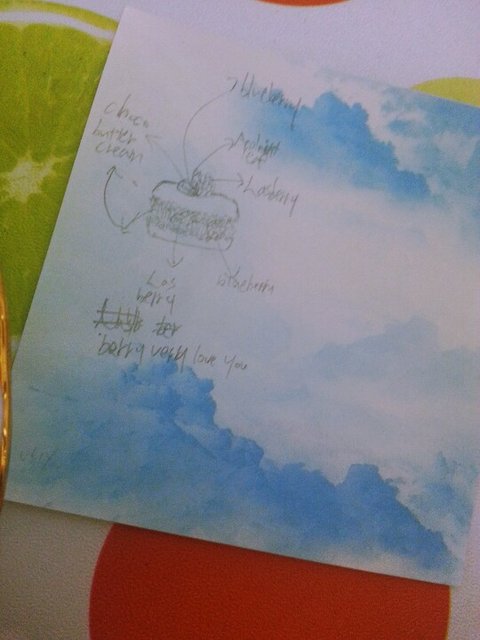 blueberry
choco
butter
cream
Losberry
Los
berry
blueberry
berry very love you